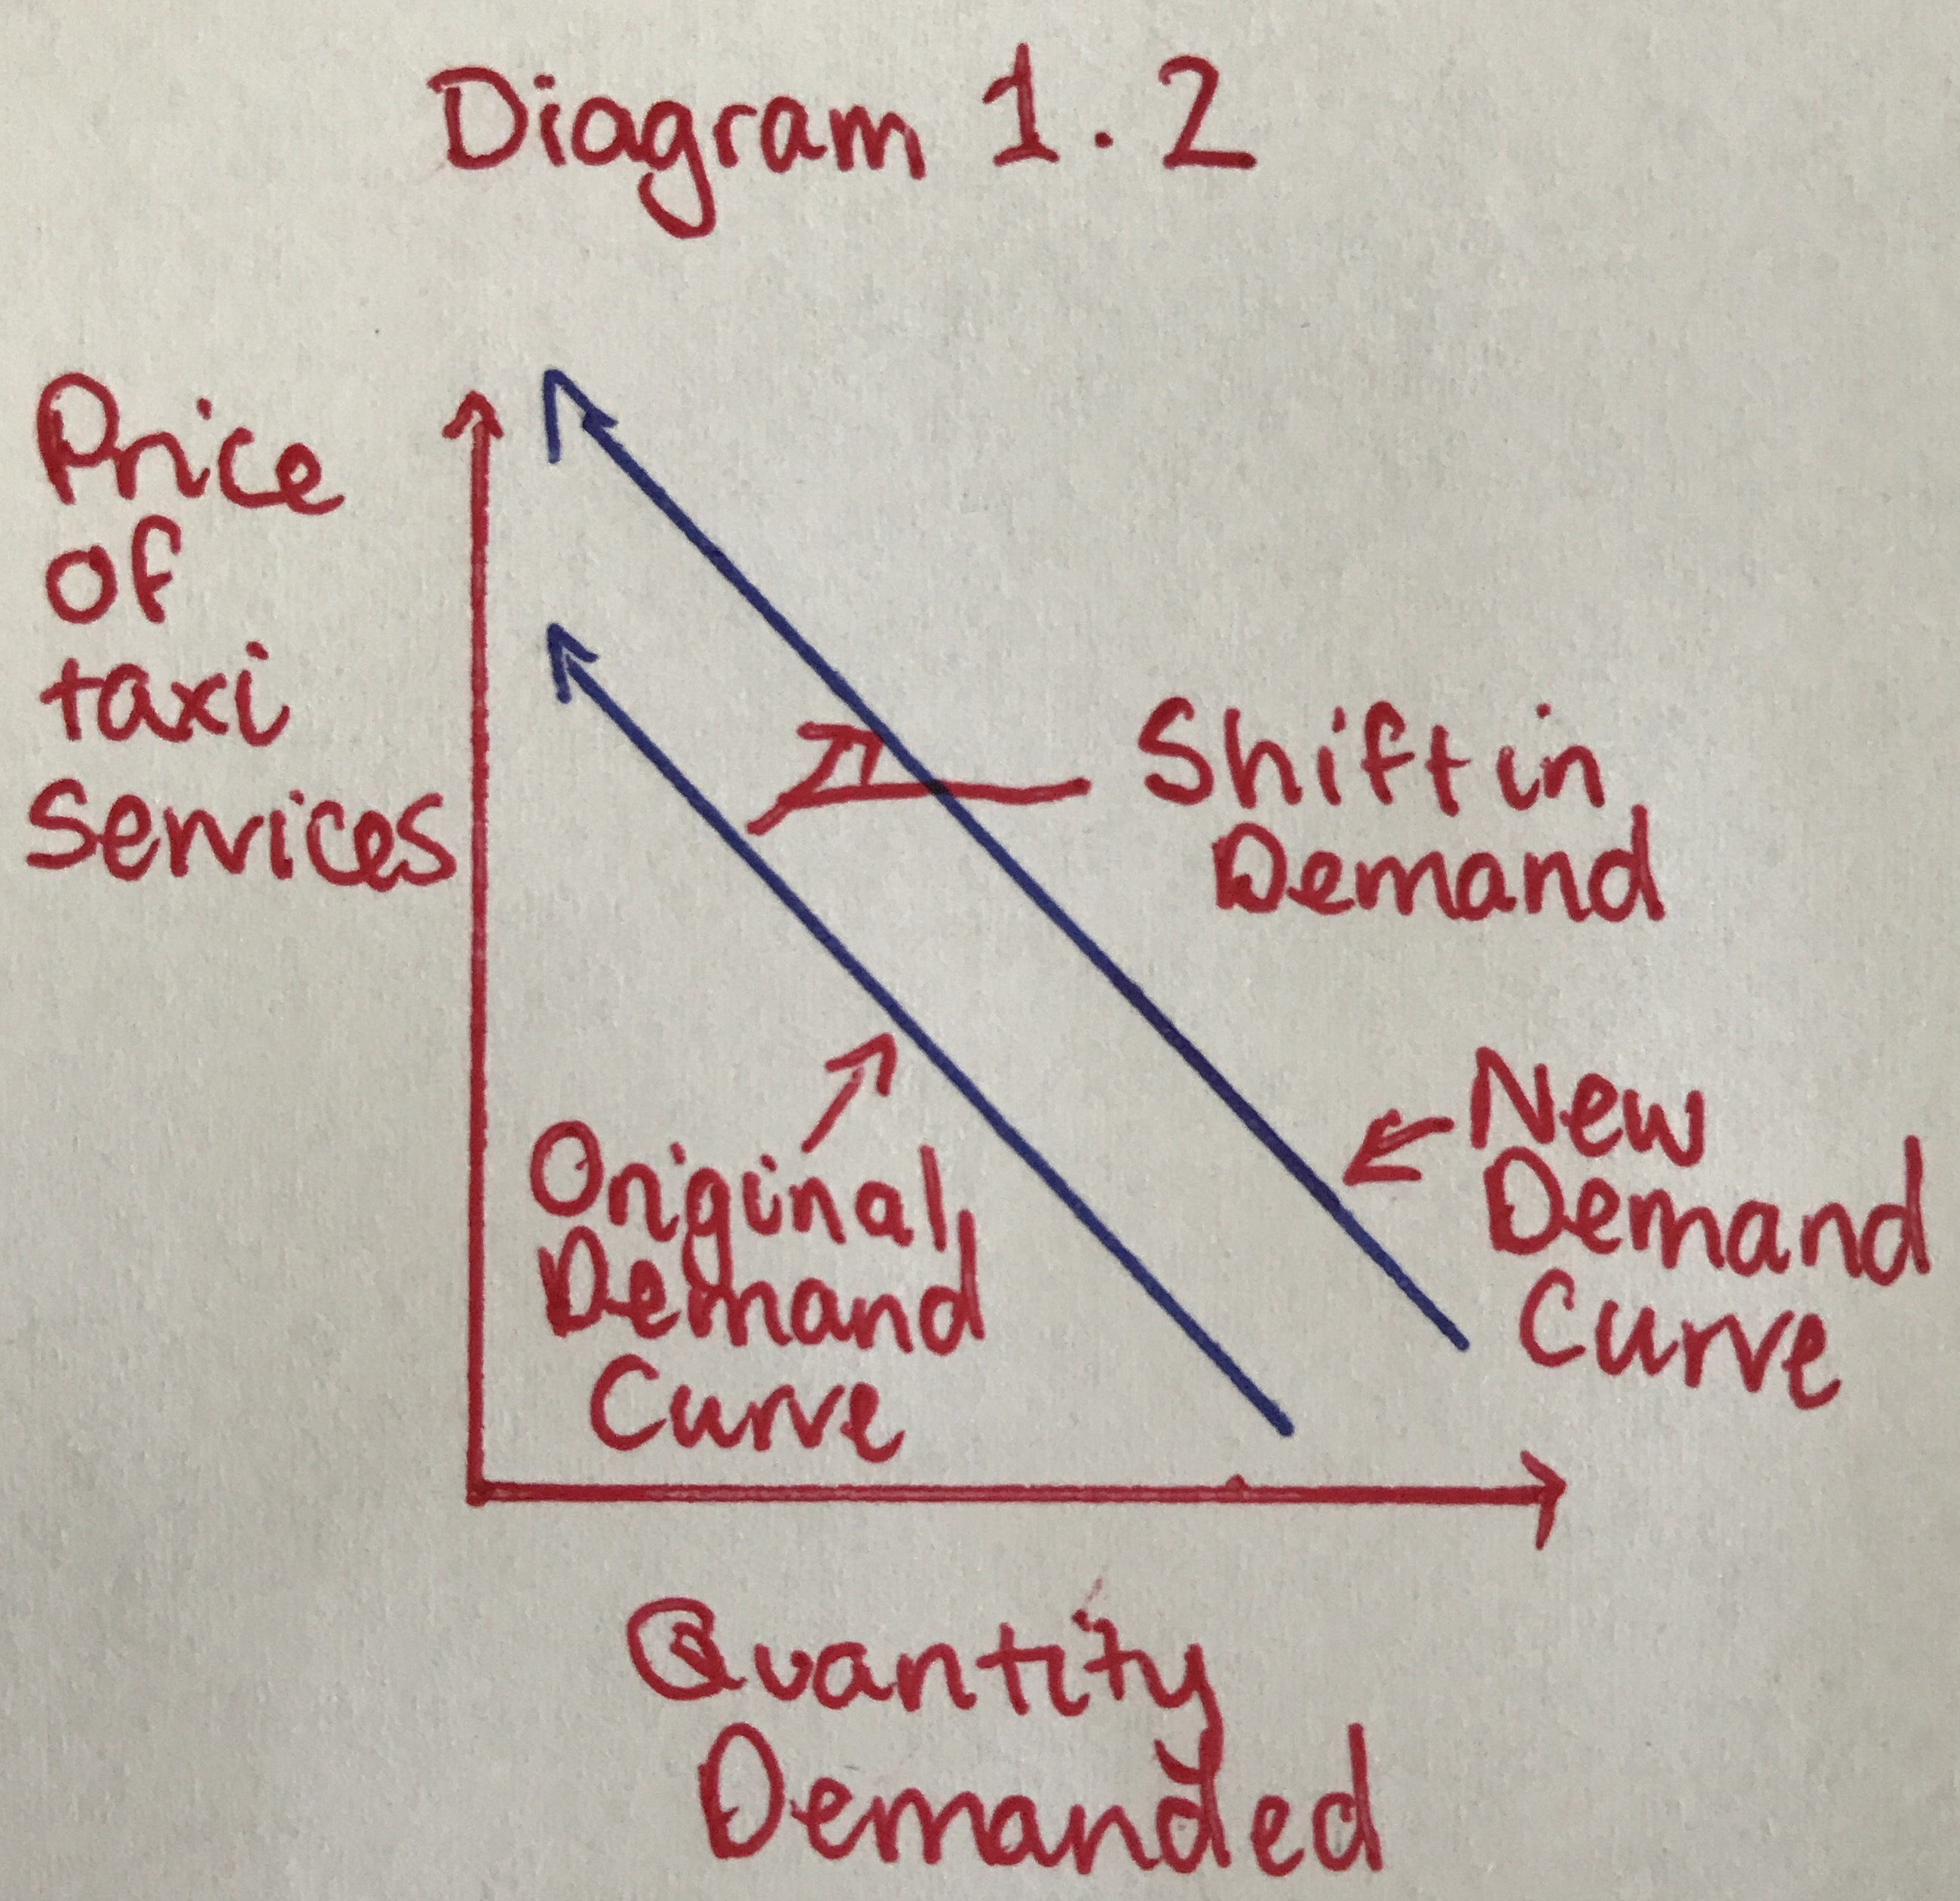 Diagram 1.2
Price
of
taxi
Services
Shift in
Demand
Original
Demand
Curve
New
Demand
Curve
Quantity
Demanded